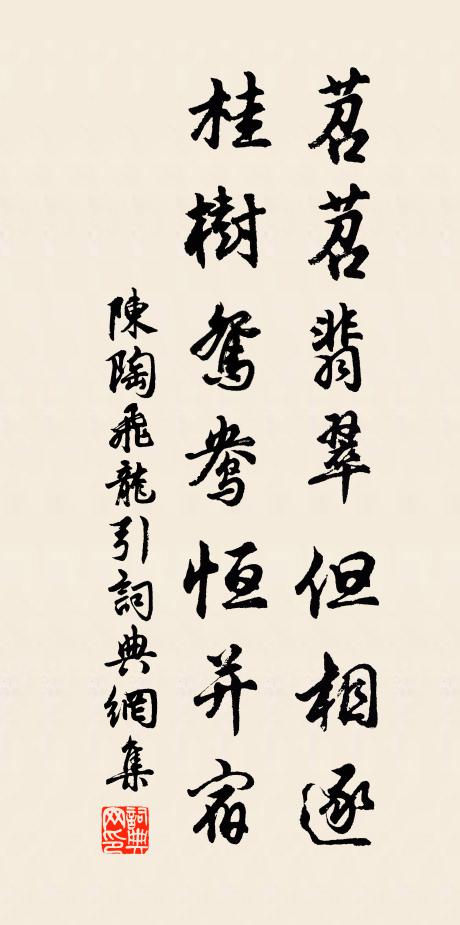 苕苕翡翠但相逐
桂樹鴛鴦恒并宿
陳陶飛龍引詞典網集
詞典網印